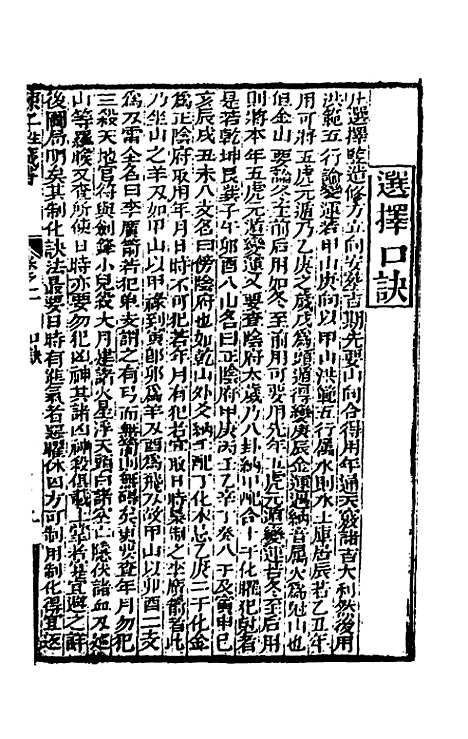 選擇口訣
凡選擇豎造修方立向安葬吉期先要山向合得用年通天竅諸吉大利然後用
洪範五行論變運若甲山庚向以甲山洪範五行屬水則水土庫居辰若乙丑年
用可將五虎元遁乃乙庚之歲戊為頭遁得庚辰金運遇納音屬火為尅山也
但金山要論冬至前后用如冬至前用可要用先年五虎元遁變運若冬至后用
則將本年五虎元遁變運又要查陰府太歲乃八卦納甲配合十干化曜犯尅者
是若乾坤艮巽子午卯酉八山名曰正陰府甲庚丙壬乙辛丁癸八干及寅申巳
亥辰戌丑未八支名曰傍陰府也如乾山外爻納壬配丁化木忌乙庚二干化金
為正陰府取用年月日時不可犯若年月有犯若宜取日時禁制之李廣箭者此
乃坐山之羊刃如甲山以甲祿到寅卽卯為羊刃酉為飛刃故甲山以卯酉二支
為刃雷全名曰李廣箭若犯單支謂之有弓而無箭山無碍矣更要查年月勿犯
三殺天地官符與劍鋒小兒殺大月建諸火星浮天空亡隱伏諸血刃巡
山等羅睺又查所使日時亦要勿犯凶神其諸凶神殺俱載上堂者甚宜避之詳
後圖局明矣其制化訣法最要日時有進氣若惡曜休囚方可制用制化得宜返